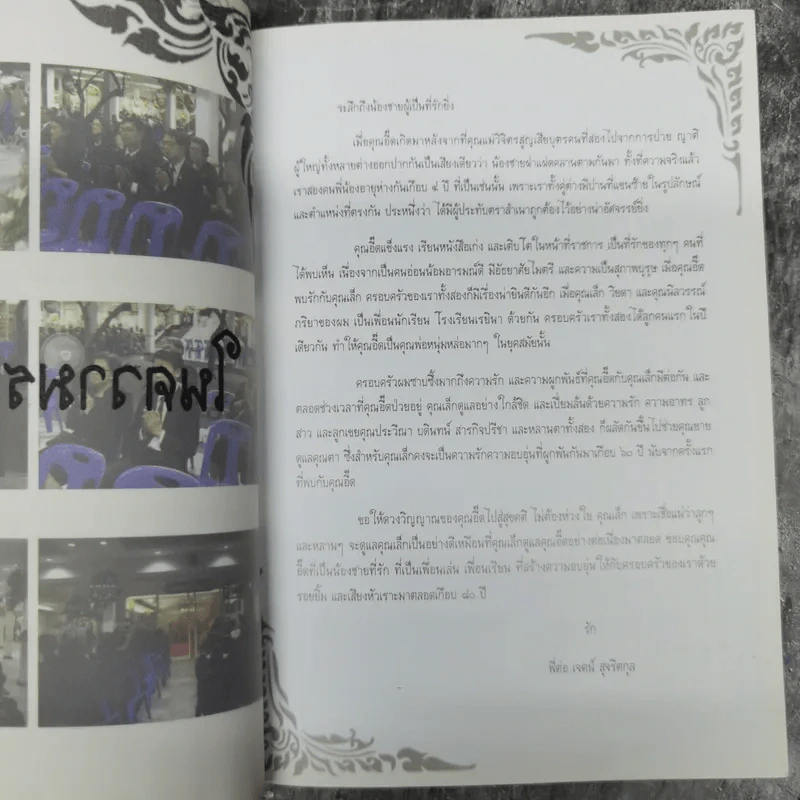 โมความร
ระลึกถึงน้องชายผู้เป็นที่รักยิ่ง
เมื่อคุณอี๊ดเกิดมาหลังจากที่คุณแม่วิจิตรสูญเสียบุตรคนที่สองไปจากการป่วย ญาติ
ผู้ใหญ่ทั้งหลายต่างออกปากกันเป็นเสียงเดียวว่า น้องชายฝาแฝดคลานตามกันมา ทั้งที่ความจริงแล้ว
เราสองคนพี่น้องอายุห่างกันเกือบ ๔ ปี ที่เป็นเช่นนั้น เพราะเราทั้งคู่ต่างมีปานที่แขนซ้ายในรูปลักษณ์
และตำแหน่งที่ตรงกัน ประหนึ่งว่า ได้มีผู้ประทับตราสำเนาถูกต้องไว้อย่างน่าอัศจรรย์ยิ่ง
คุณอี๊ดแข็งแรง เรียนหนังสือเก่ง และเติบโตในหน้าที่ราชการ เป็นที่รักของทุกๆ คนที่
ได้พบเห็น เนื่องจากเป็นคนอ่อนน้อมอารมณ์ดี มีอัธยาศัยไมตรี และความเป็นสุภาพบุรุษ เมื่อคุณอี๊ด
พบรักกับคุณเล็ก ครอบครัวของเราทั้งสองก็มีเรื่องน่ายินดีกันอีก เมื่อคุณเล็ก วิยดา และคุณนิลวรรณ์
ภริยาของผม เป็นเพื่อนนักเรียน โรงเรียนเรยินา ด้วยกัน ครอบครัวเราทั้งสองได้ลูกคนแรกในปี
เดียวกัน ทำให้คุณอี๊ดเป็นคุณพ่อหนุ่มหล่อมากๆ ในยุคสมัยนั้น
ครอบครัวผมซาบซึ้งมากถึงความรัก และความผูกพันธ์ที่คุณอี๊ดกับคุณเล็กมีต่อกัน และ
ตลอดช่วงเวลาที่คุณอี๊ดป่วยอยู่ คุณเล็กดูแลอย่างใกล้ชิด และเปี่ยมล้นด้วยความรัก ความอาทร ลูก
สาว และลูกเขยคุณประวีณา บดินทน์ สารกิจปรีชา และหลานตาทั้งสอง ก็ผลัดกันขึ้นไปช่วยคุณยาย
ดูแลคุณตา ซึ่งสำหรับคุณเล็กคงจะเป็นความรักความอบอุ่นที่ผูกพันกันมาเกือบ ๖๐ ปี นับจากครั้งแรก
ที่พบกับคุณอี๊ด
ขอให้ดวงวิญญาณของคุณอี๊ดไปสู่สุขคติ ไม่ต้องห่วงใย คุณเล็ก เพราะเชื่อแน่ว่าลูกๆ
และหลานๆ จะดูแลคุณเล็กเป็นอย่างดีเหมือนที่คุณเล็กดูแลคุณอี๊ดอย่างต่อเนื่องมาตลอด ขอบคุณคุณ
อี๊ดที่เป็นน้องชายที่รัก ที่เป็นเพื่อนเล่น เพื่อนเรียน ที่สร้างความอบอุ่นให้กับครอบครัวของเราด้วย
รอยยิ้ม และเสียงหัวเราะมาตลอดเกือบ ๘๐ ปี
รัก
พี่ต่อ เจตน์ สุจริตกุล